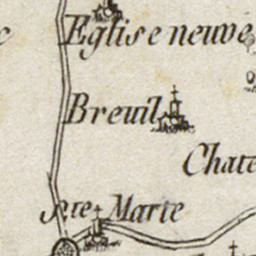 Eglise neuve
Breuil
Chate
Ste Marie